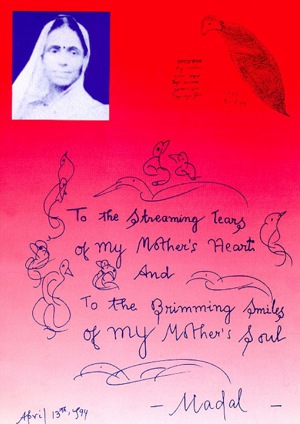 To the Streaming Tears
of my Mother's Heart
And
To the Brimming Smiles
of my Mother's Soul
- Madal -
April 13th, 1994